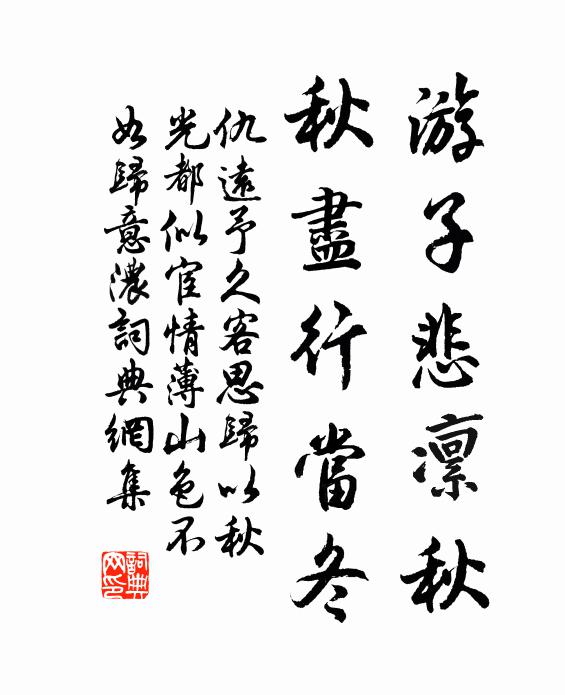 游子悲凛秋
秋盡行當冬
仇遠予久客思歸以秋
光都似宦情薄山色不
如歸意濃詞典網集
詞典
网印